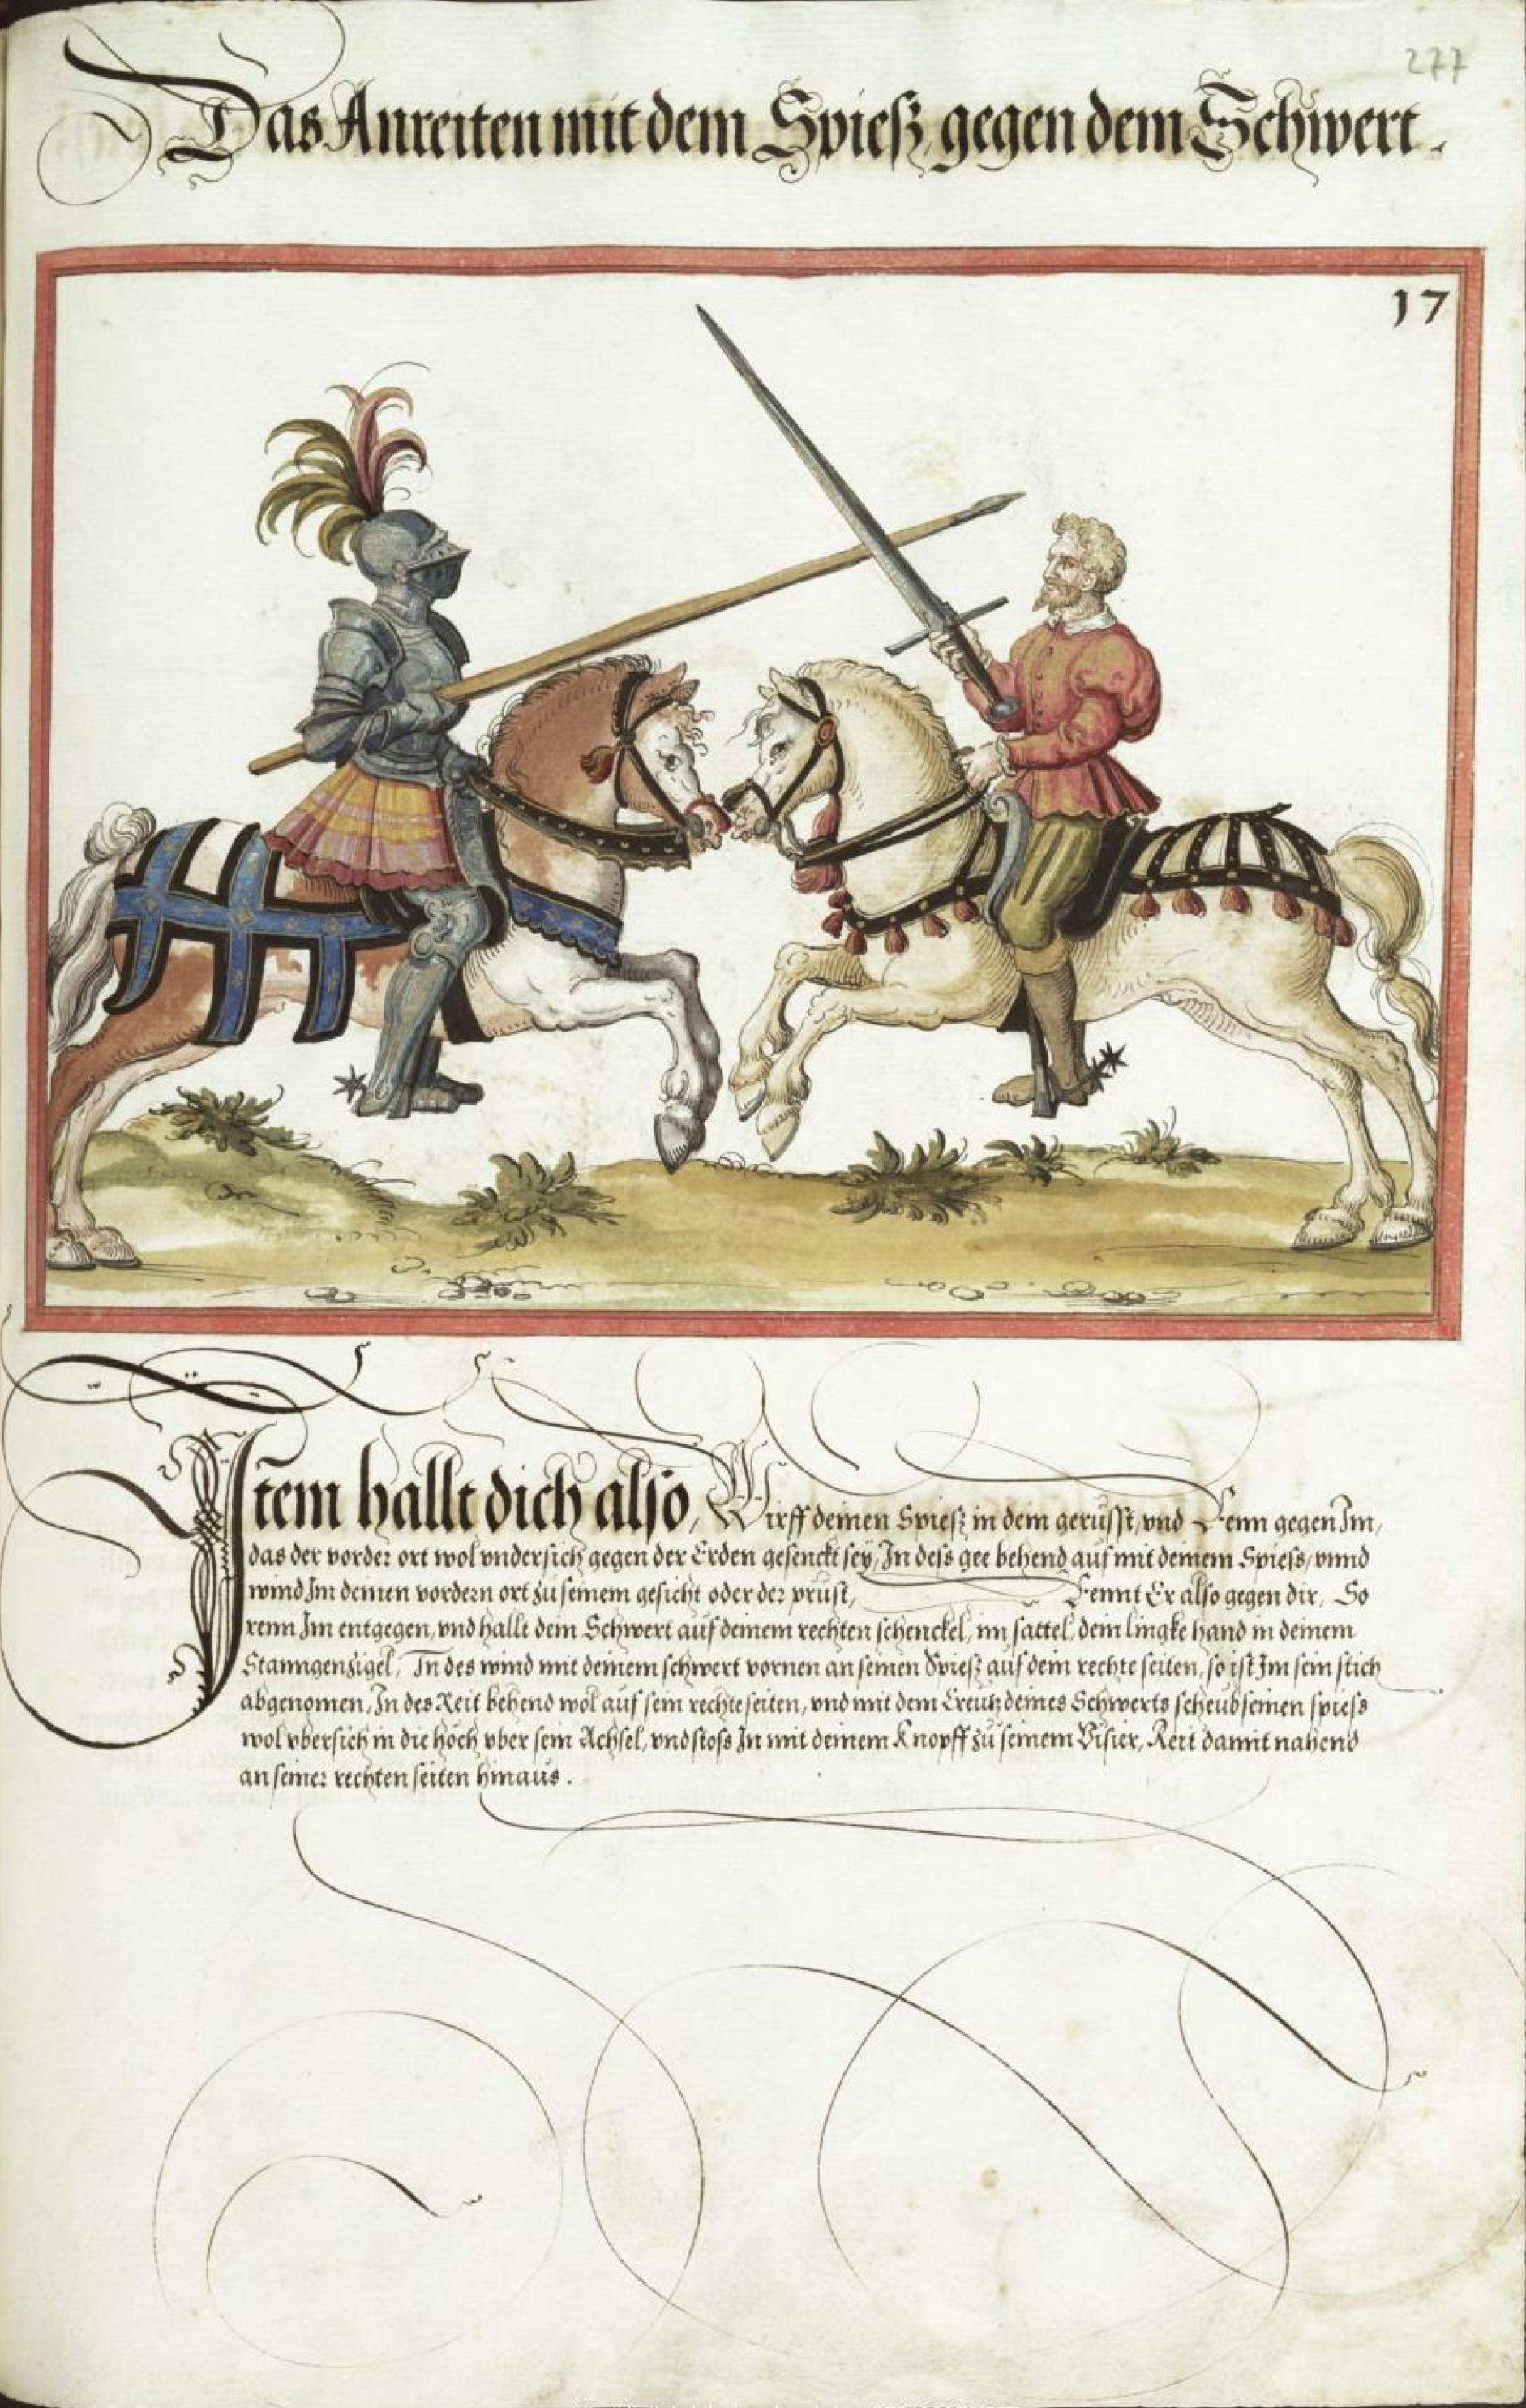 277
Das Anreiten mit dem Spiesz gegen dem Schwert.
17
Item hallt dich also, Wirff deinen Spiesz in dem gerusst, und Renn gegen Im,
das der vorder ort wol undersich gegen der Erden gesenckt sey, In dess gee behend auf mit deinem Spiess, unnd
wind Im deinen vordern ort zu seinem gesicht oder der prust, Rennt Er also gegen dir, So
renn Im entgegen, und hallt dein Schwert auf deinem rechten schenckel, im sattel, dein lingke hand in deinem
Stanngenzigel, In des wind mit deinem schwert vornen an seinen Spiesz auf dein rechte seiten, so ist Im sein stich
abgenomen, In des Reit behend wol auf sein rechte seiten, und mit dem Creutz deines Schwerts scheub seinen spiess
wol vbersich in die höch vber sein Achsel, und stoss In mit deinem Knopff zu seinem Visier, Reit damit nahend
an seiner rechten seiten hinaus.